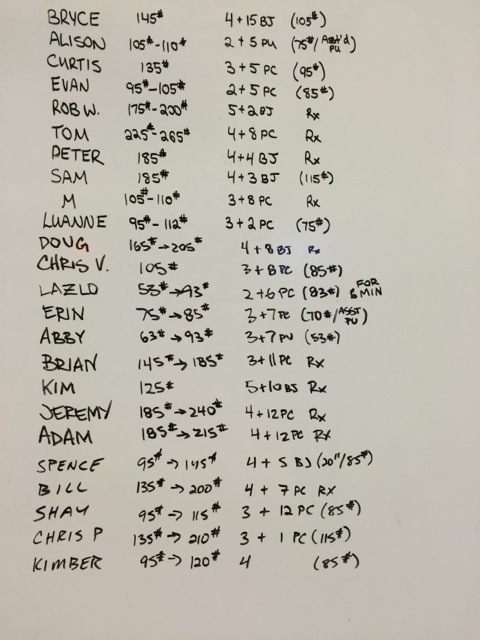 BRYCE 145# 4+15 BJ (105#)
ALISON 105#-110# 2+5 PU (75#/Asst'd PU)
CURTIS 135# 3+5 PC (95#)
EVAN 95#-105# 2+5 PC (85#)
ROB W. 175#-200# 5+2 BJ Rx
TOM 225#-265# 4+8 PC Rx
PETER 185# 4+4 BJ Rx
SAM 185# 4+3 BJ (115#)
M 105#-110# 3+8 PC Rx
LUANNE 95#-112# 3+2 PC (75#)
DOUG 165#→205# 4+8 BJ Rx
CHRIS V. 105# 3+8 PC (85#)
LAZLO 53#→93# 2+6 PC (83#) FOR 6 MIN
ERIN 75#→85# 3+7 PC (70#/ASST PU)
ABBY 63#→93# 3+7 PU (53#)
BRIAN 145#→185# 3+11 PC Rx
KIM 125# 5+10 BJ Rx
JEREMY 185#→240# 4+12 PC Rx
ADAM 185#→215# 4+12 PC Rx
SPENCE 95#→145# 4+5 BJ (20"/85#)
BILL 135#→200# 4+7 PC RX
SHAY 95#→115# 3+12 PC (85#)
CHRIS P 135#→210# 3+1 PC (115#)
KIMBER 95#→120# 4 (85#)